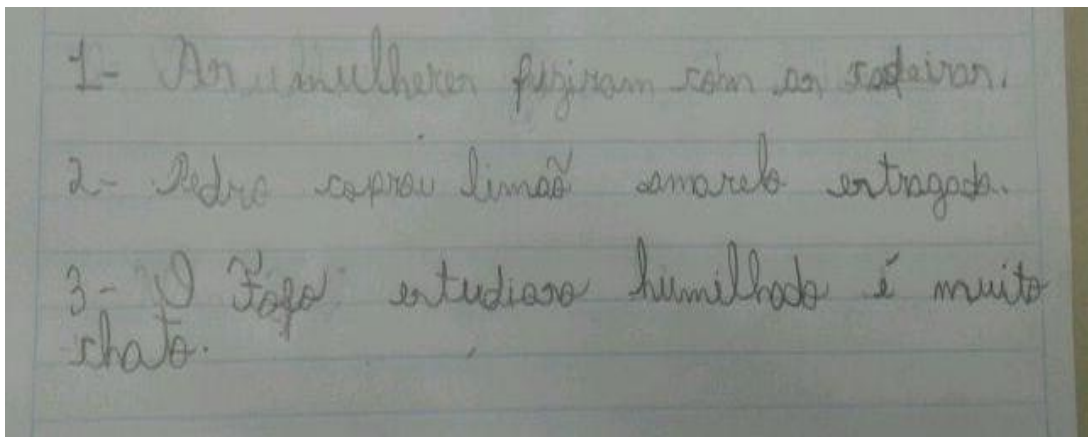 1- As mulheres fugiram com as cadeiras.
2- Pedro coprou limão amarelo estragado.
3- O estudioso humilhado é muito
chato.